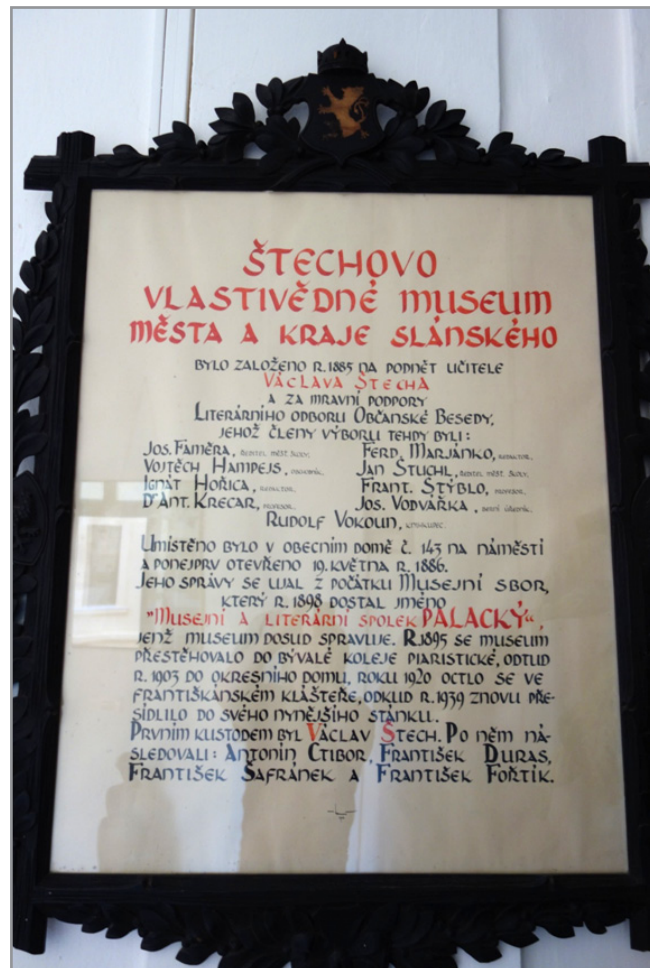 ŠTECHOVO
VLASTIVĚDNÉ MUSEUM
MĚSTA A KRAJE SLÁNSKÉHO
BYLO ZALOŽENO R. 1885 NA PODNĚT UČITELE
VÁCLAVA ŠTECHA
A ZA MRAVNÍ PODPORY
LITERÁRNÍHO ODBORU OBČANSKÉ BESEDY,
JEHOŽ ČLENY VÝBORU TEHDY BYLI:
JOS. FAMĚRA, ŘEDITEL MĚST. ŠKOLY, FERD. MARJÁNKO, REDAKTOR,
VOJTĚCH HAMPEJS, JAN ŠTUCHL, ŘEDITEL MĚST. ŠKOLY,
IGNÁT HOŘICA, REDAKTOR, FRANT. ŠTÝBLO, PROFESOR,
DR ANT. KRECAR, PROFESOR, JOS. VODVÁRKA,
RUDOLF VOKOUN, KNIHKUPEC.
UMÍSTĚNO BYLO V OBECNÍM DOMĚ Č. 143 NA NÁMĚSTÍ
A PONEJPRV OTEVŘENO 19. KVĚTNA R. 1886.
JEHO SPRÁVY SE UJAL Z POČÁTKU MUSEJNÍ SBOR,
KTERÝ R. 1898 DOSTAL JMÉNO
"MUSEJNÍ A LITERÁRNÍ SPOLEK PALACKÝ“,
JENŽ MUSEUM DOSUD SPRAVUJE. R. 1895 SE MUSEUM
PŘESTĚHOVALO DO BÝVALÉ KOLEJE PIARISTICKÉ, ODTUD
R. 1903 DO OKRESNÍHO DOMU, ROKU 1920 OCTLO SE VE
FRANTIŠKÁNSKÉM KLÁŠTEŘE, ODKUD R. 1939 ZNOVU PŘE-
SÍDLILO DO SVÉHO NYNĚJŠÍHO STÁNKU.
PRVNÍM KUSTODEM BYL VÁCLAV ŠTECH. PO NĚM NÁ-
SLEDOVALI: ANTONÍN CTIBOR, FRANTIŠEK DURAS,
FRANTIŠEK ŠAFRÁNEK A FRANTIŠEK FOŘTÍK.